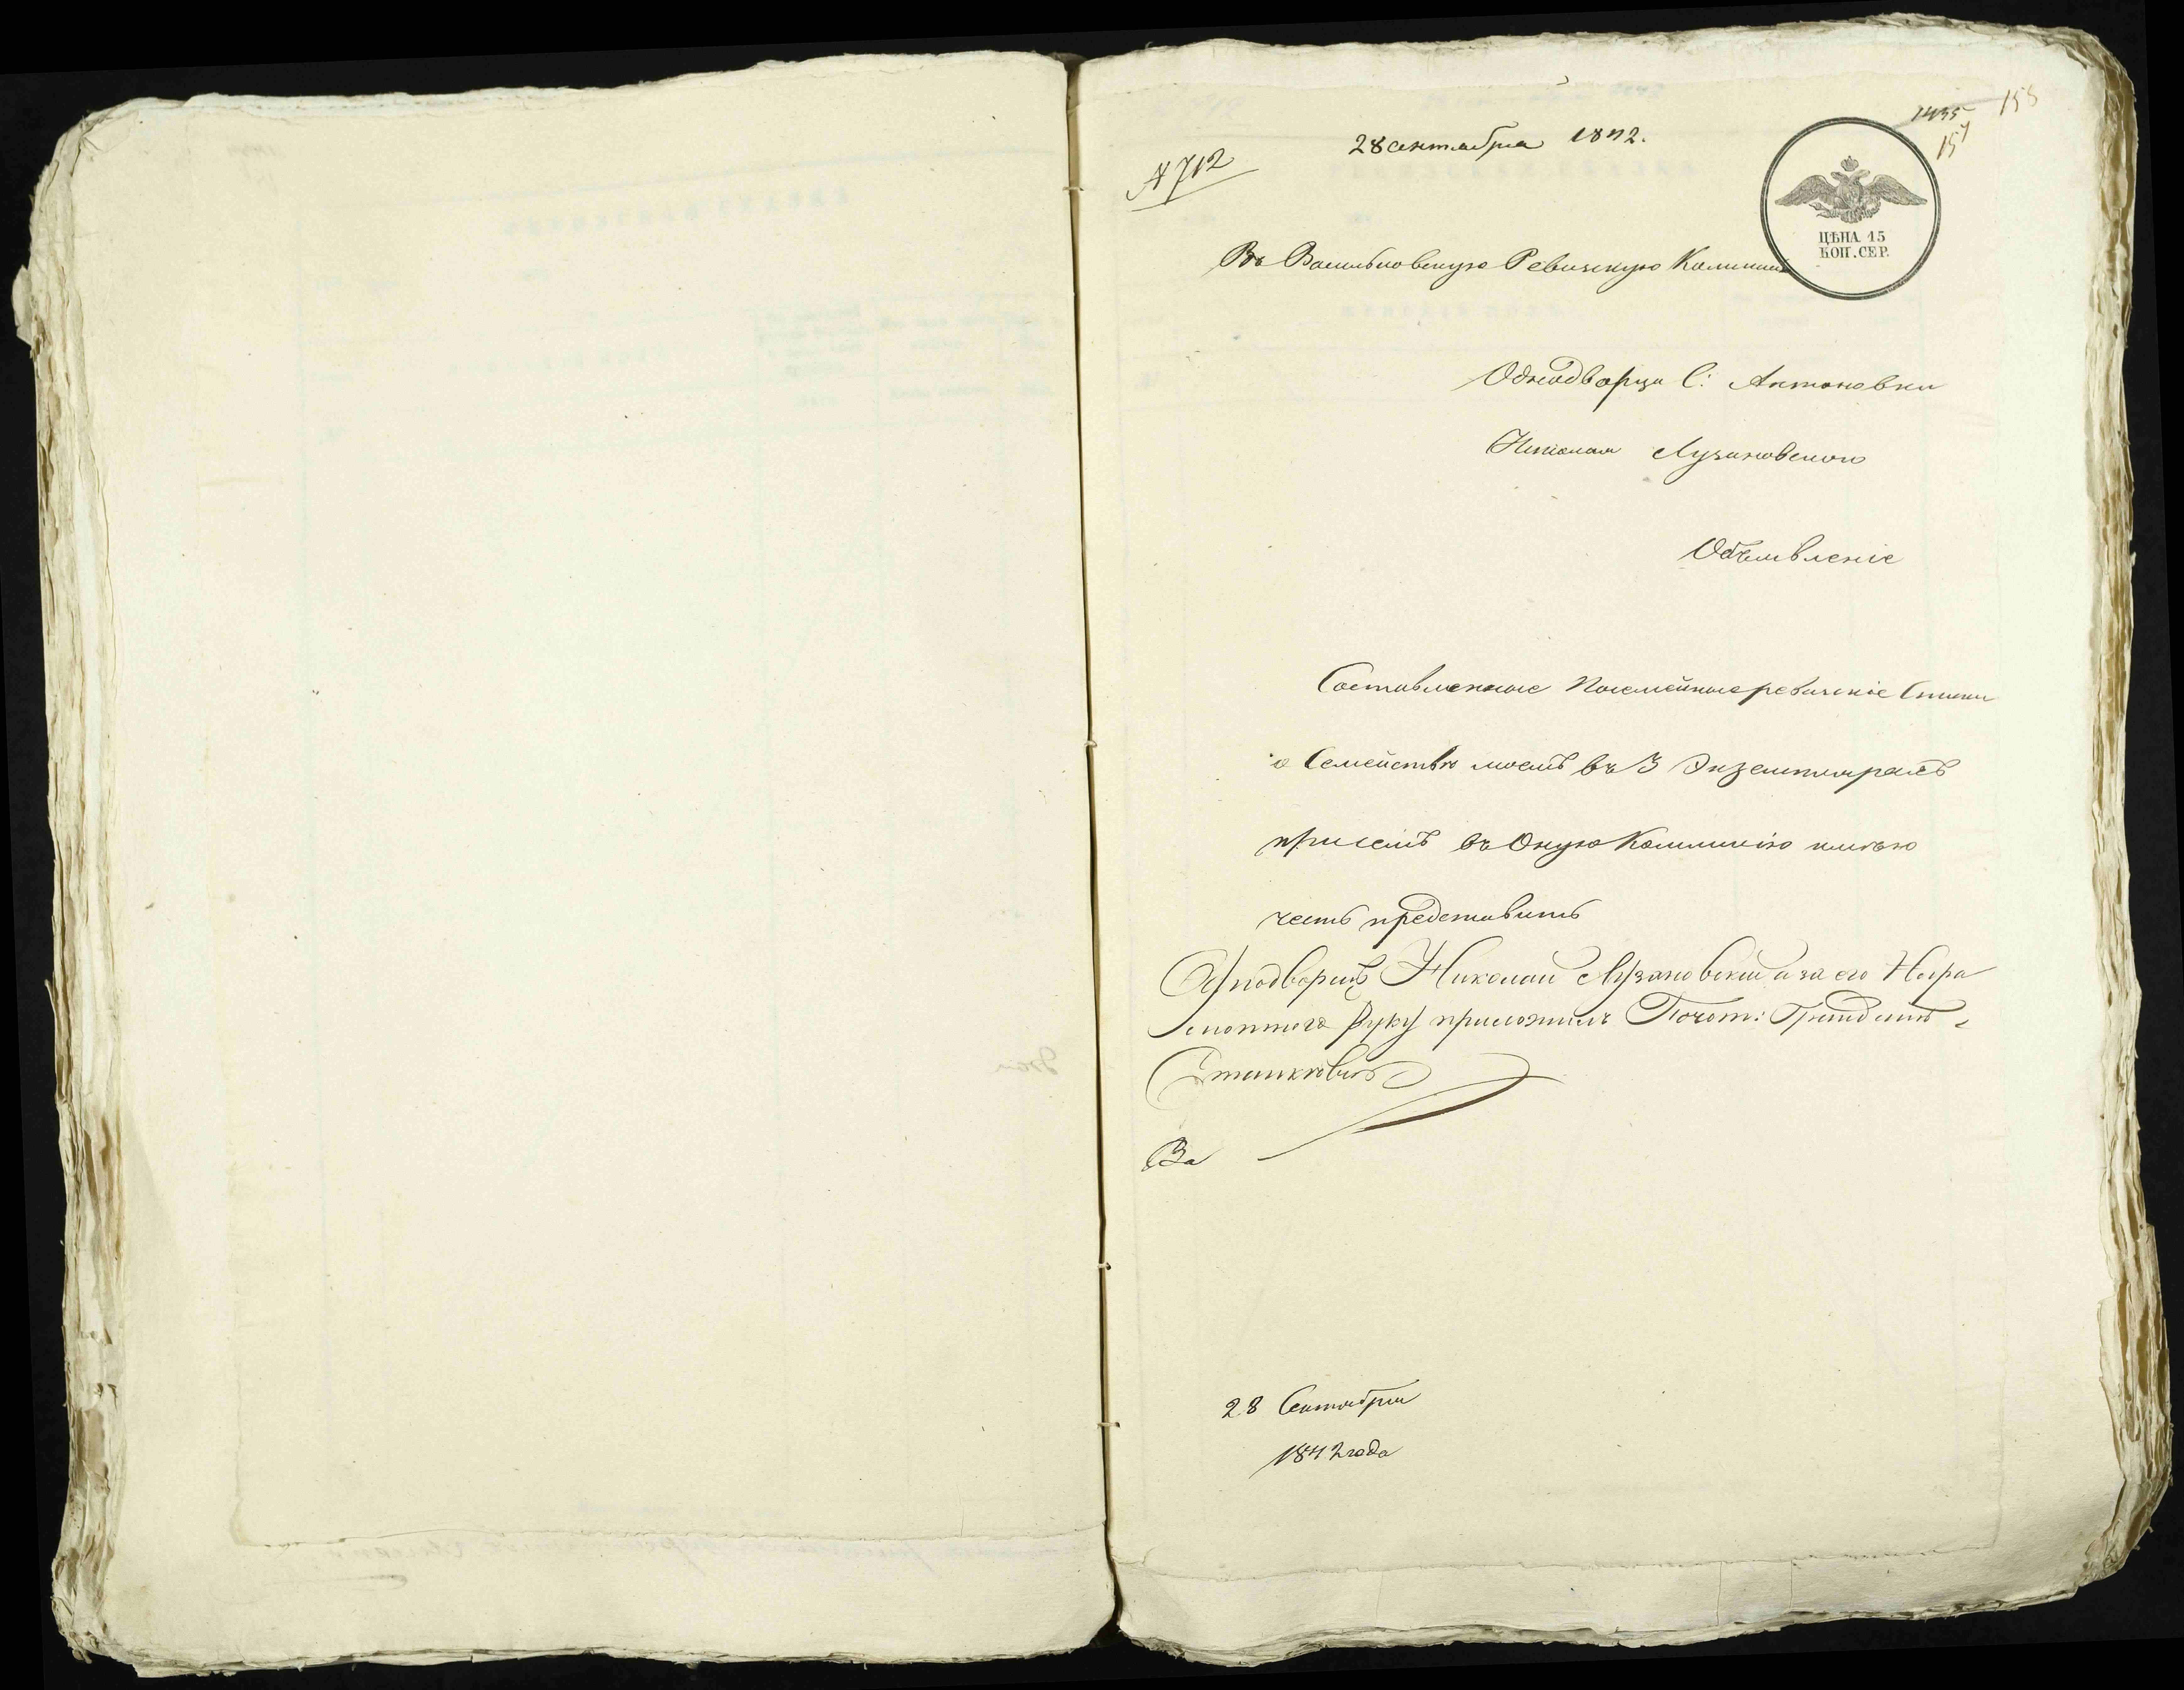 1435
155
157
28 сентября 1842.
№ 712
ЦѢНА 15
КОП. СЕР.
Въ Васильковскую Ревизскую Комисію
Однодворца С: Антоновки
Николая Лузановского
Объявленіе
Составленные Посемейные ревизскіе Списки
о Семействѣ моемъ въ 3 Экземплярахъ
присемъ въ Оную Коммисію имѣю
честь представить
Однодворецъ Николай Лузановскій а за его Негра
мотнаго Руку приложилъ Почот: Гражданинъ
Станкевичъ
За
28 Сентября
1842 года